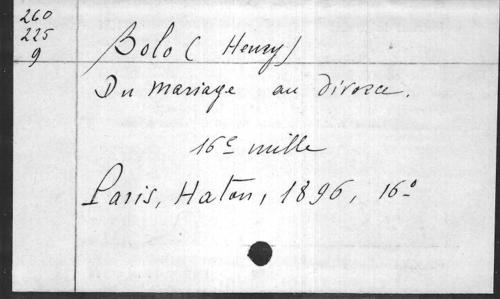 260
225
9
Bolo (Henry)
Du mariage au divorce.
16e mille
Paris, Haton, 1896, 16°